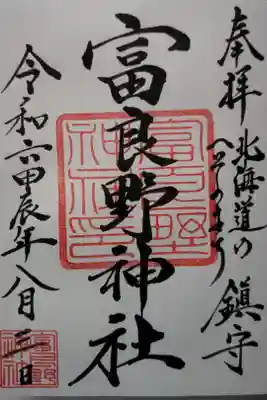 奉拝
北海道の
へそのまち
鎮守
富良野神社
令和六甲辰年八月三日